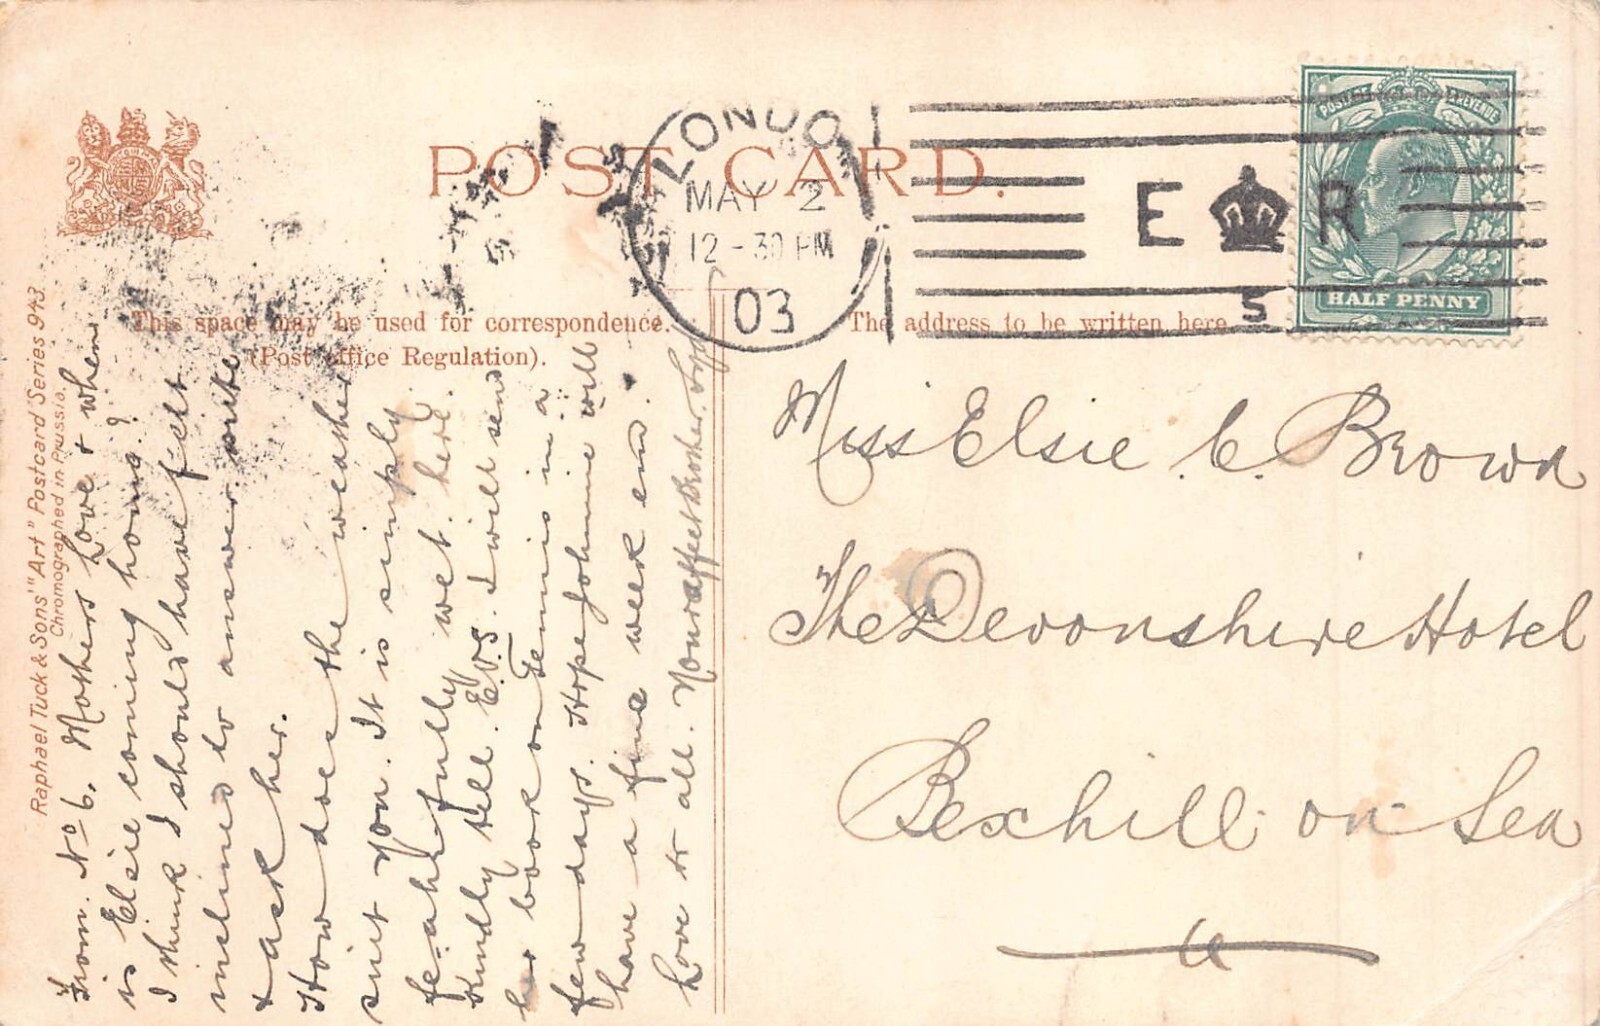 POST CARD.
LONDO
MAY 2
12-30 PM
03
E R
S
POSTAGE REVENUE
HALF PENNY
This space may be used for correspondence.
(Post Office Regulation).
The address to be written here
Raphael Tuck & Sons' "Art" Postcard Series 943.
Chromographed in Prussia.
From. No 6. Mothers Love & when
is Elsie coming home?
I think I should have felt
inclined to answer. write
& ask her.
How does the weather
suit you. It is simply
fearfully wet here.
Kindly tell. E.V.S. I will send
her book on Tennis in a
few days. Hope Johnnie will
have a fine week end.
Love to all. Your affect Brother
Miss Elsie C Brown
The Devonshire Hotel
Bexhill on Sea